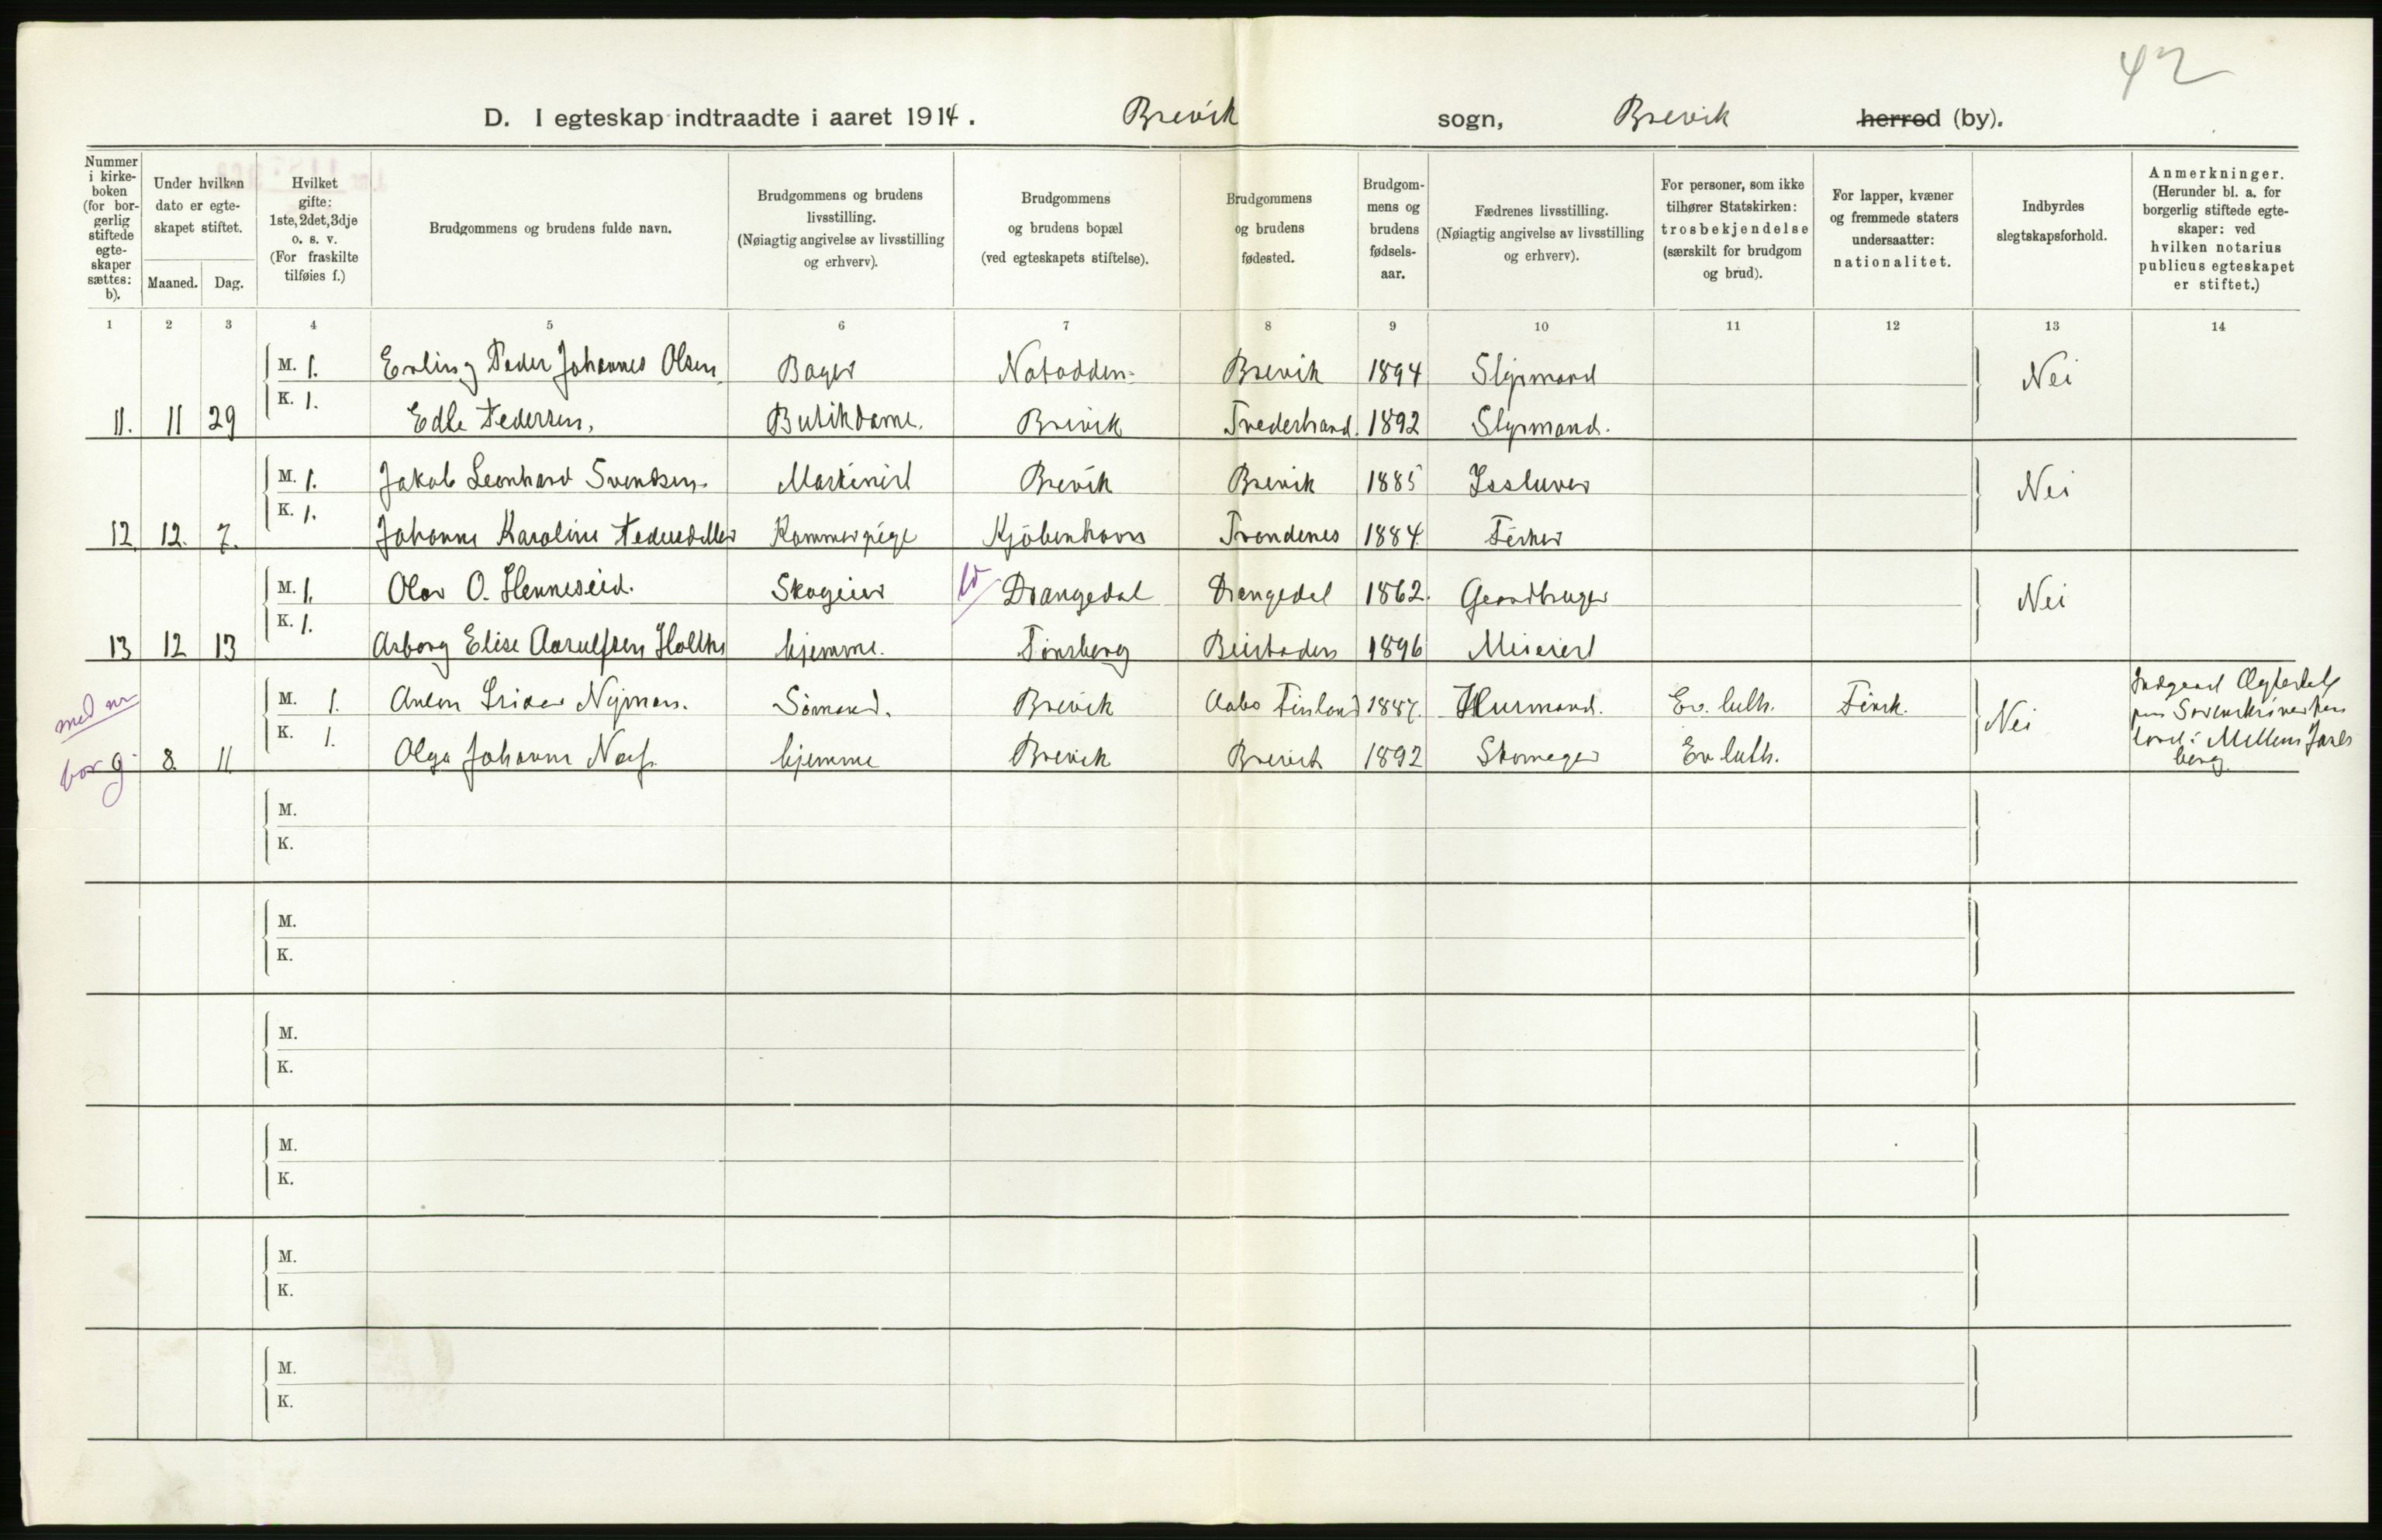 42
D. I egteskap indtraadte i aaret 1914. Brevik sogn, Brevik herred (by).
Nummer i kirkeboken (for borgerlig stiftede egteskaper sættes: b).
Under hvilken dato er egteskapet stiftet.
Maaned. Dag.
Hvilket gifte: 1ste, 2det, 3dje o. s. v. (For fraskilte tilføies f.)
Brudgommens og brudens fulde navn.
Brudgommens og brudens livsstilling. (Nøiagtig angivelse av livsstilling og erhverv).
Brudgommens og brudens bopæl (ved egteskapets stiftelse).
Brudgommens og brudens fødested.
Brudgommens og brudens fødselsaar.
Fædrenes livsstilling. (Nøiagtig angivelse av livsstilling og erhverv).
For personer, som ikke tilhører Statskirken: trosbekjendelse (særskilt for brudgom og brud).
For lapper, kvæner og fremmede staters undersaatter: nationalitet.
Indbyrdes slegtskapsforhold.
Anmerkninger. (Herunder bl. a. for borgerlig stiftede egteskaper: ved hvilken notarius publicus egteskapet er stiftet.)
1 2 3 4 5 6 7 8 9 10 11 12 13 14
M. 1. Erling Peder Johannes Olsen Bager Notodden Brevik 1894 Styrmand Nei
11. 11 29 K. 1. Edle Pedersen, Butikdame. Brevik Tvedestrand. 1892 Styrmand.
M. 1. Jakob Leonhard Svendsen Maskinist Brevik Brevik 1885 Nei
12. 12. 7. K. 1. Johanne Karoline Kammerpige Kjøbenhavn Trondenes 1884 Fisker
M. 1. Olav O. Henneseid. Skogeier Drangedal Drangedal 1862. Gaardbruger Nei
13 12 13 K. 1. Asborg Elise Aasulfsen Holthe hjemme. Tønsberg 1896 Meierist
med nr
M. 1. Anton Nyman. Sømand. Brevik Aabo Finland 1887. Ev. luth. Finsk. Nei
bor g. 8. 11 K. 1. Olga Johanne Næss hjemme Brevik Brevik 1892 Skomager Ev. luth.
Mellem Jarlsberg
M.
K.
M.
K.
M.
K.
M.
K.
M.
K.
M.
K.